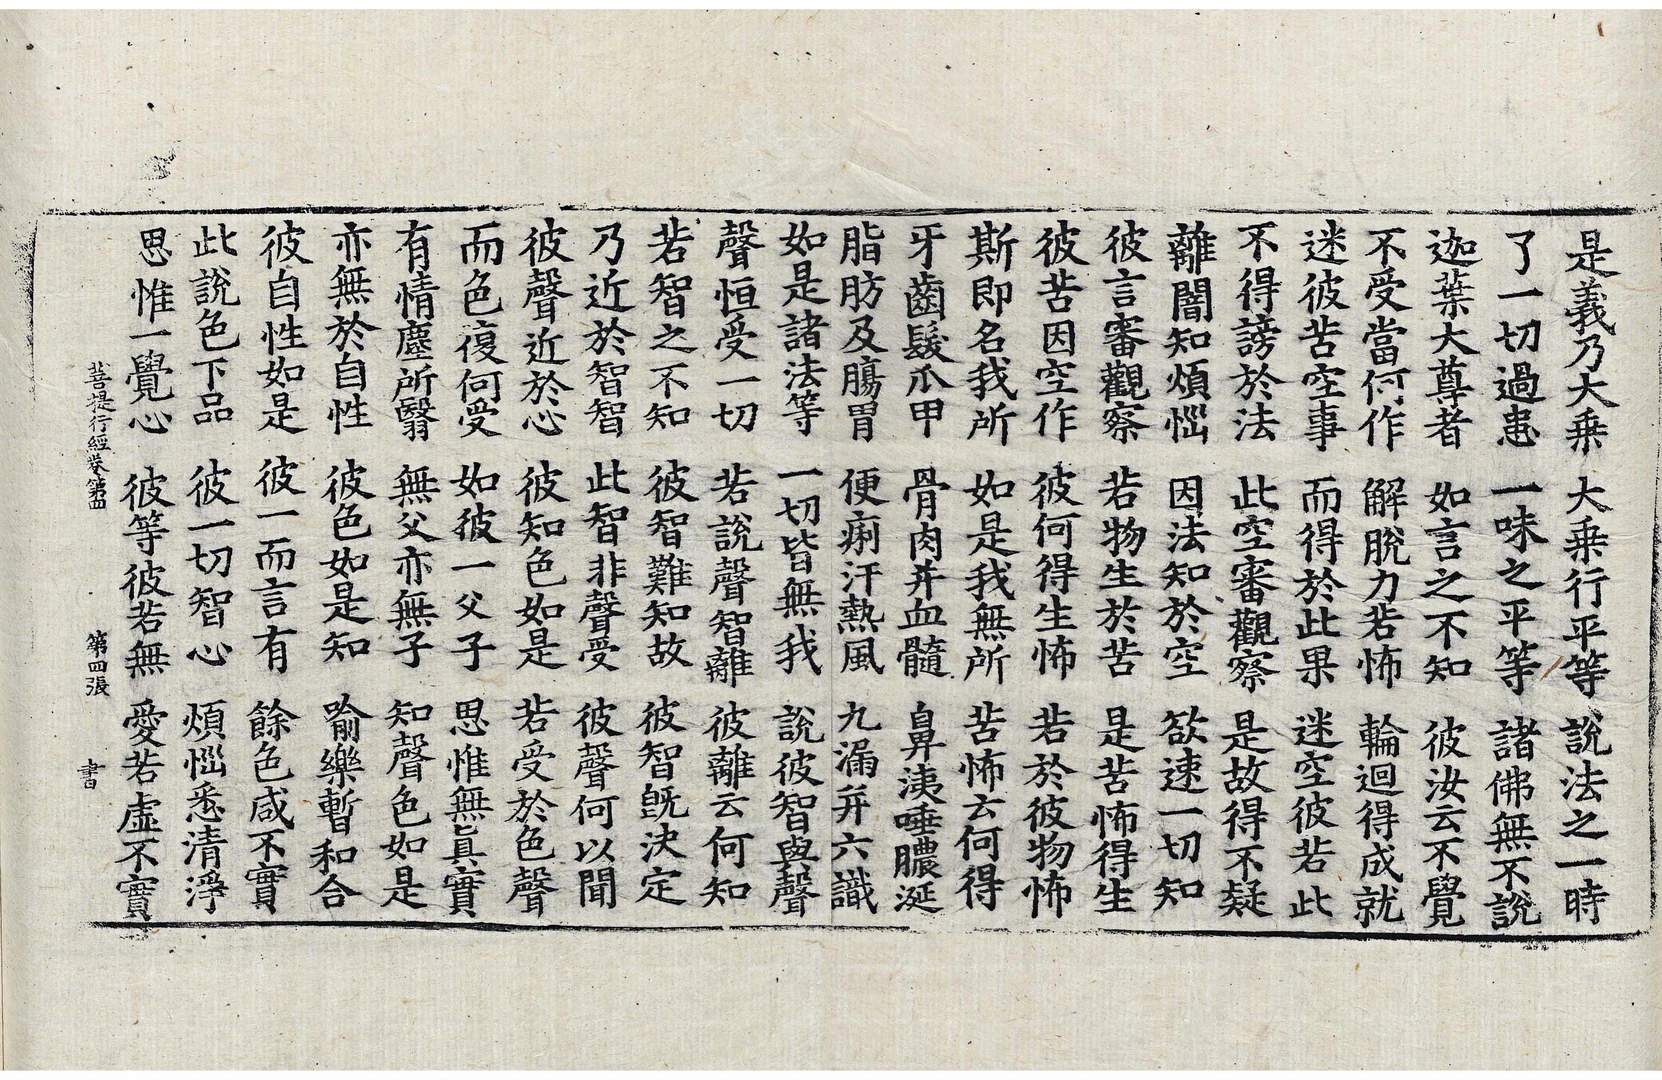 是義乃大乗 大乗行平等 說法之一時
了一切過患 一味之平等 諸佛無不說
迦葉大尊者 如言之不知 彼汝云不覺
不受當何作 解脫力若怖 輪迴得成就
迷彼苦空事 而得於此果 迷空彼若此
不得謗於法 此空審觀察 是故得不疑
離闇知煩惱 因法知於空 欲速一切知
彼言審觀察 若物生於苦 是苦怖得生
彼苦因空作 彼何得生怖 若於彼物怖
斯即名我所 如是我無所 苦怖云何得
牙齒髮爪甲 骨肉并血髓 鼻洟唾膿涎
脂肪及腸胃 便痢汗熱風 九漏并六識
如是諸法等 一切皆無我 說彼智與聲
聲恒受一切 若說聲智離 彼離云何知
若智之不知 彼智難知故 彼智旣決定
乃近於智智 此智非聲受 彼聲何以聞
彼聲近於心 彼知色如是 若受於色聲
而色復何受 如彼一父子 思惟無眞實
有情塵所翳 無父亦無子 知聲色如是
亦無於自性 彼色如是知 喻樂暫和合
彼自性如是 彼一而言有 餘色咸不實
此說色下品 彼一切智心 煩惱悉清淨
思惟一覺心 彼等彼若無 愛若虛不實
菩提行經卷第四 第四張 書